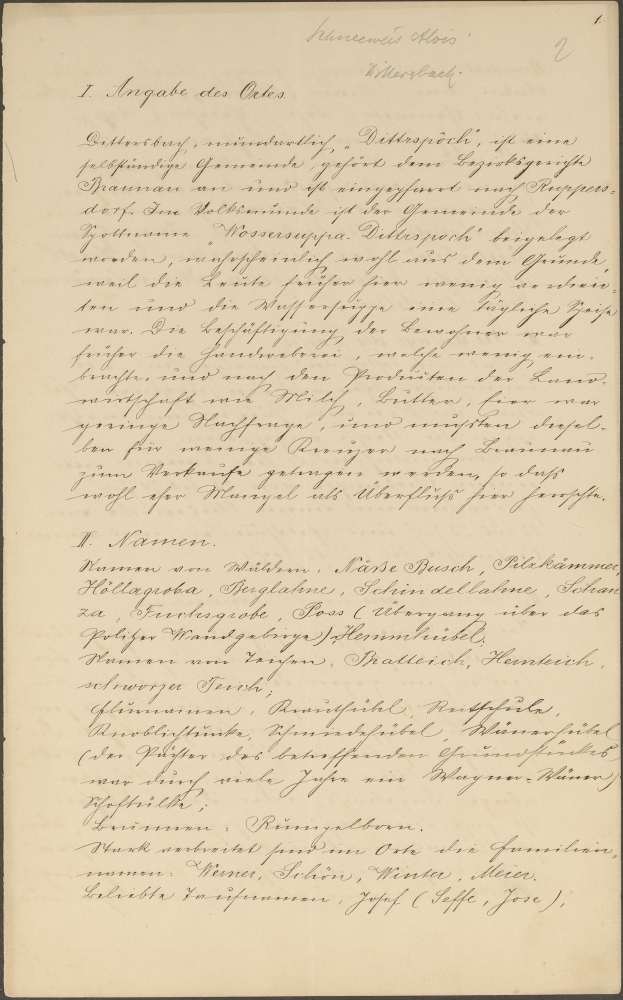 1.
Schneeweis Alois
2
Dittersbach.
I. Angabe des Ortes.
Dittersbach, mundartlich „Dittrspöch“, ist eine
selbständige Gemeinde, gehört dem Bezirksgerichte
Braunau an und ist eingepfarrt nach Ruppers-
dorf. Im Volksmunde ist der Gemeinde der
Spottname „Wossersuppa-Dittrspoch“ beigelegt
worden, wahrscheinlich wohl aus dem Grunde,
weil die Leute früher hier wenig verdien-
ten und die Wassersuppe eine tägliche Speise
war. Die Beschäftigung der Bewohner war
früher die Handweberei, welche wenig ein-
brachte, und nach den Produkten der Land-
wirtschaft wie Milch, Butter, Eier war
geringe Nachfrage, und mußten diesel-
ben für wenige Kreuzer nach Braunau
zum Verkaufe getragen werden, so daß
wohl eher Mangel als Überfluß hier herrschte.
II. Namen.
Namen von Wäldern: Näße Busch, Pilzkämmer,
Höllagroba, Berglahne, Schindellahne, Schan
za, Fuchsgrobe, Poss (Übergang über das
Politzer Wandgebirge), Hemmhübel;
Namen von Teichen: Bratteich, Hemteich,
schworzer Teich;
Flurnamen: Krauthübel, Reitschule,
Knoblichtunke, Schmiedehübel, Wänerhübel
(der Pächter des betreffenden Grundstückes
war durch viele Jahre ein Wagner-Wäner)
Schoftülke;
Brunnen: Rungelborn.
Stark verbreitet sind im Orte die Familien-
namen: Werner, Schön, Winter, Meier.
Beliebte Taufnamen: Josef (Seffe, Jose);